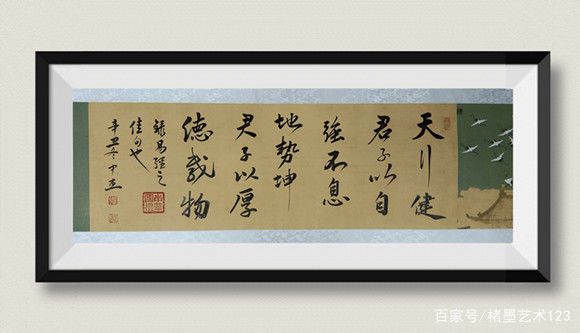 天行健
君子以自
強不息
地勢坤
君子以厚
德載物
錄易經之
佳句也
辛丑冬
百家号/楮墨艺术123